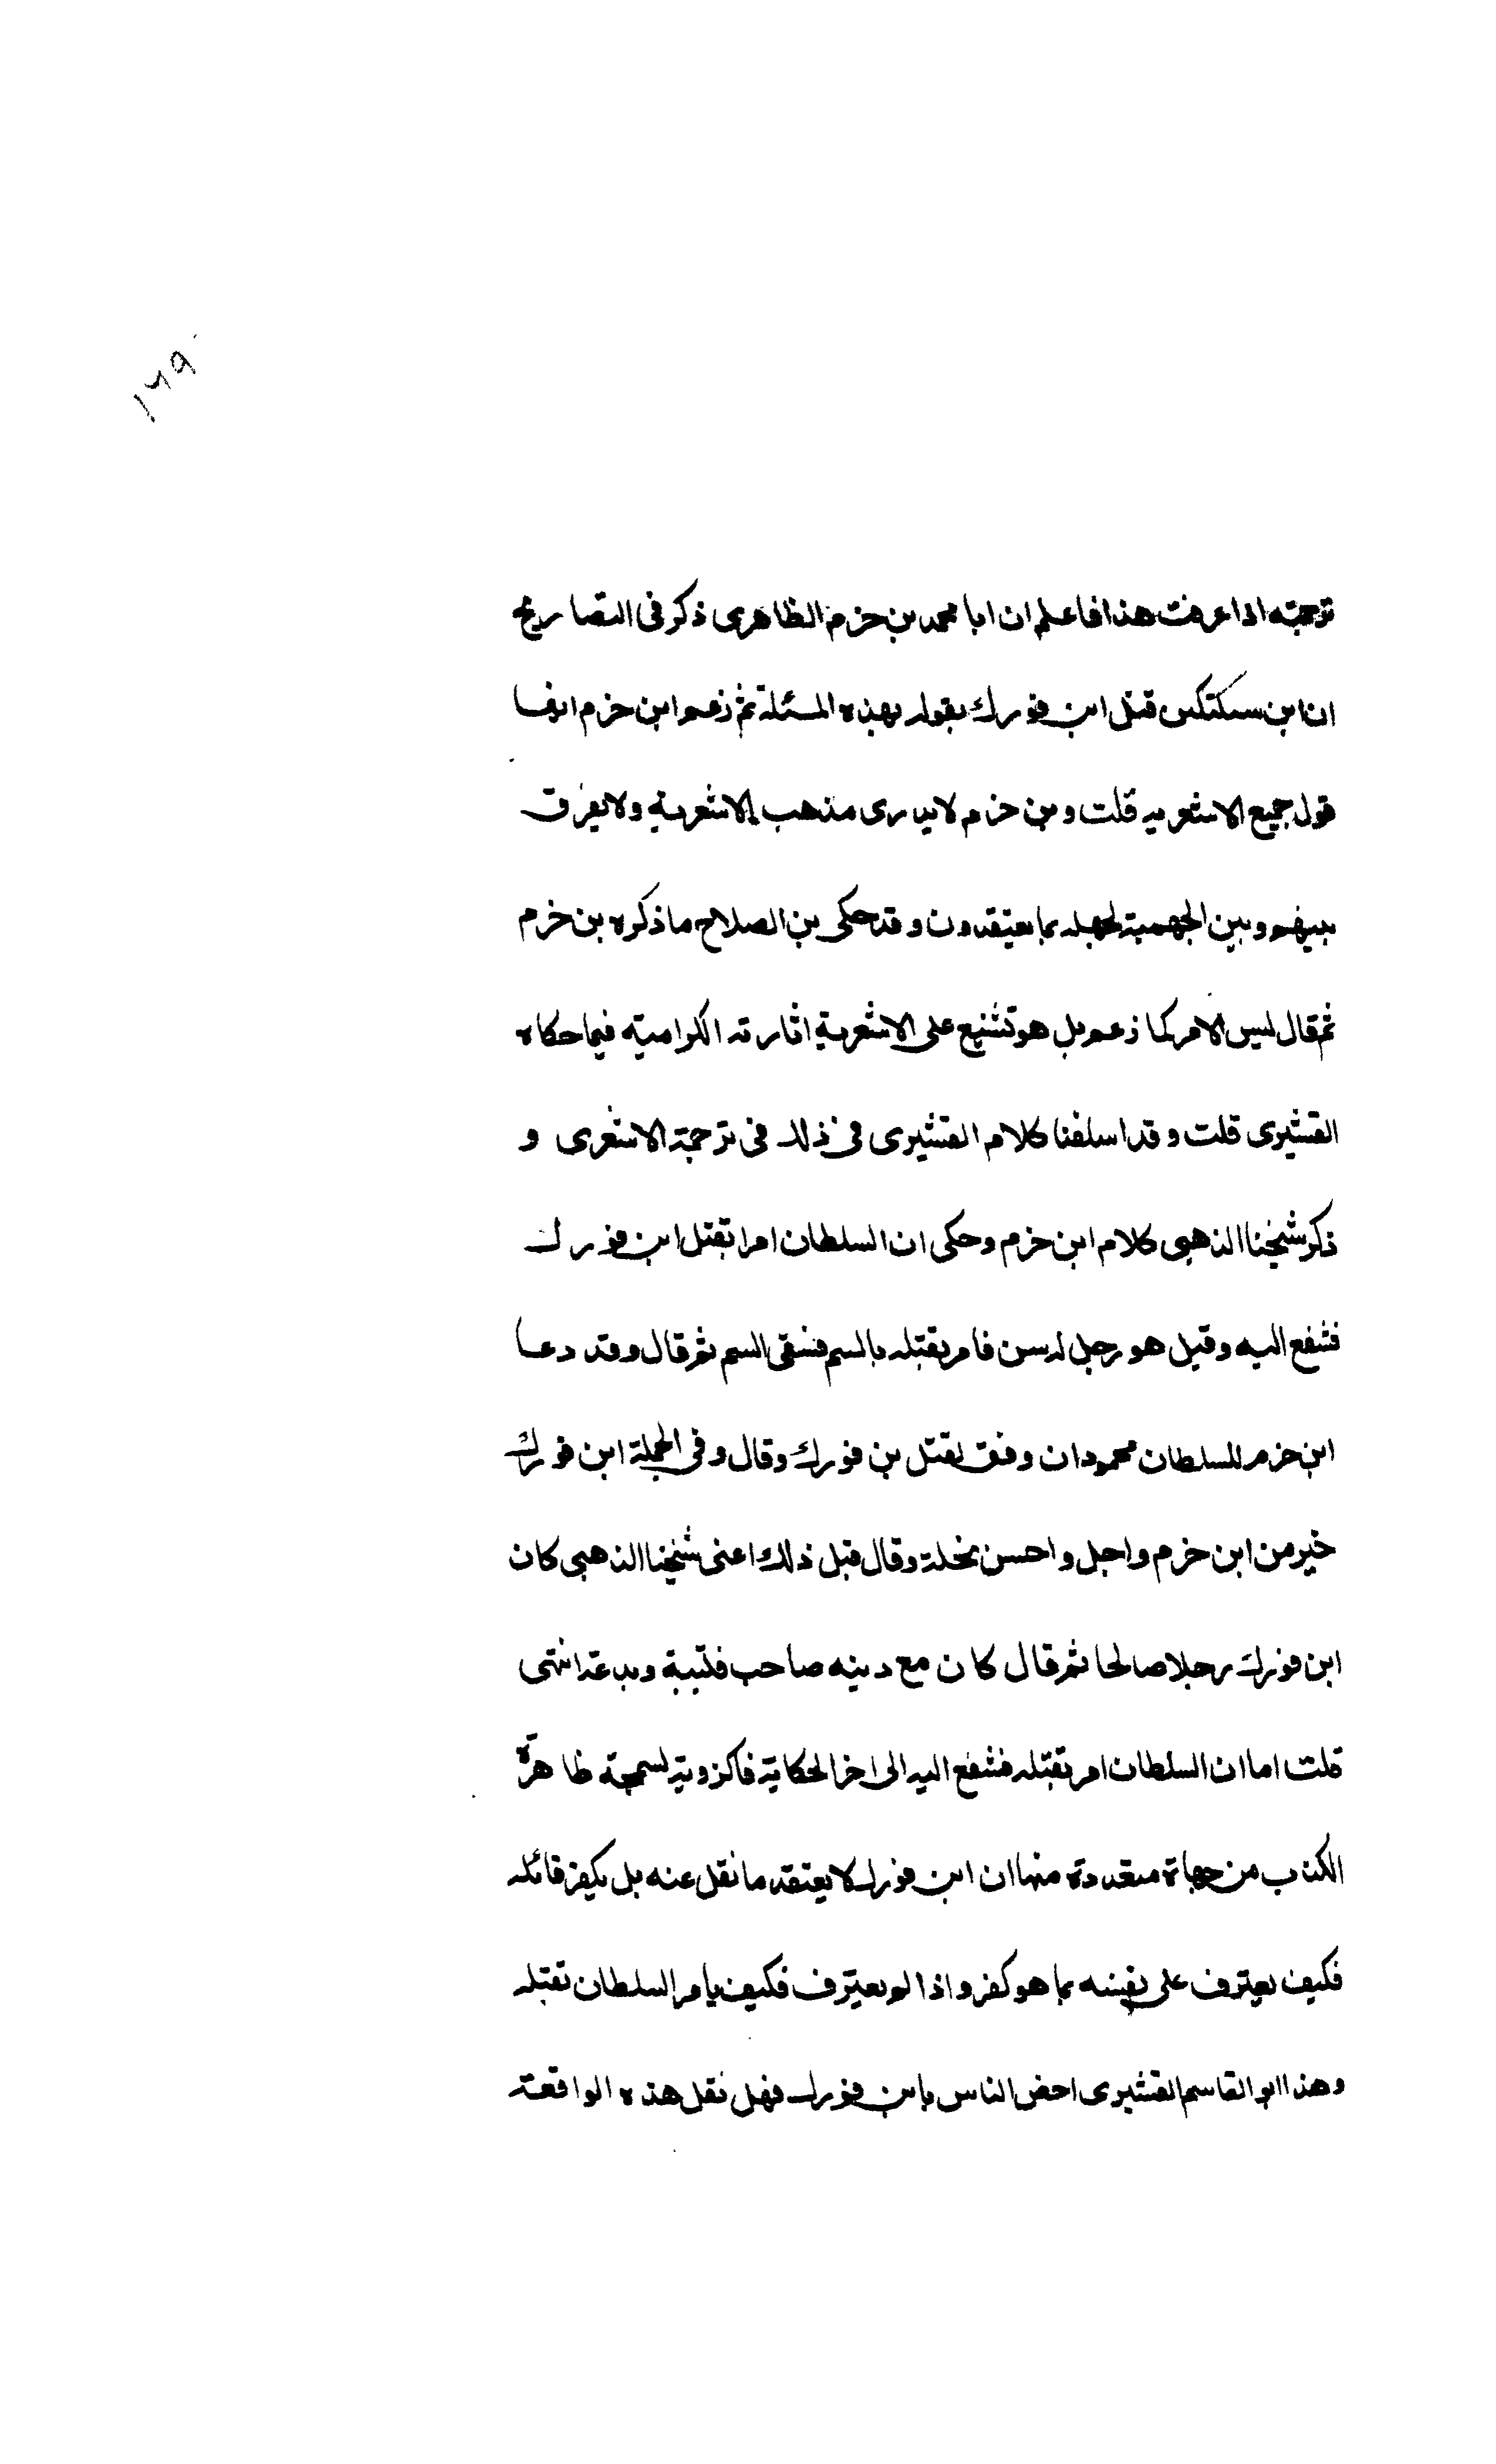 ١٦٩
ترجمته اذا عرفت هذا فاعلم ان ابا محمد بن حزم الظاهرى ذكر فى التصاريح
ان ابن سبكتكين قتل ابن فورك بقوله بهذه المسئلة ثم زعم ابن حزم انها
قول جميع الاشعريه قلت وبن حزم لا يدرى مذهب الاشعرية ولا يفرق
بينهم وبين الجهمية لجهله بما يعتقدون وقد حكى بن الصلاح ما ذكره بن حزم
ثم قال ليس الامر كما زعم بل هو تشنيع على الاشعرية اثارته الكراميته فيما حكاه
القشيرى قلت وقد اسلفنا كلام القشيرى فى ذلك فى ترجمة الاشعرى و
ذكر شيخنا الذهبى كلام ابن حزم وحكى ان السلطان امر بقتل ابن فورك
فشفع اليه وقيل هو رجل له سن فامر بقتله بالسم فسقى السم ثم قال وقد دعا
ابن حزم للسلطان محمود ان وفق لقتل بن فورك وقال وفى الجملة ابن فورك
خير من ابن حزم واجل واحسن نحلة وقال قبل ذلك اعنى شيخنا الذهبى كان
ابن فورك رجلا صالحا ثم قال كان مع دينه صاحب فلتبة وبدعة انتهى
قلت اما ان السلطان امر بقتله فشفع اليه الى اخر الحكاية فاكزوبة لسمجة ظاهرة
الكذب من جهاة متعددة منها ان ابن فورك لا يعتقد ما نقل عنه بل يكفر قائله
فكيف يعترف على نفسه بما هو كفر واذا لم يعترف فكيف يامر السلطان بقتله
وهذا ابو القاسم القشيرى احض الناس بابن فورك فهل نقل هذه الواقعة